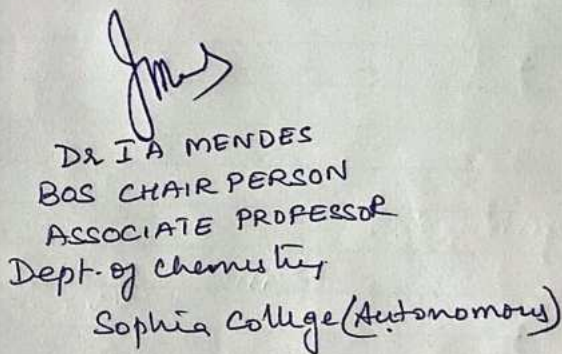 Dr I A MENDES
BOS CHAIR PERSON
ASSOCIATE PROFESSOR
Dept. of Chemistry
Sophia College (Autonomous)